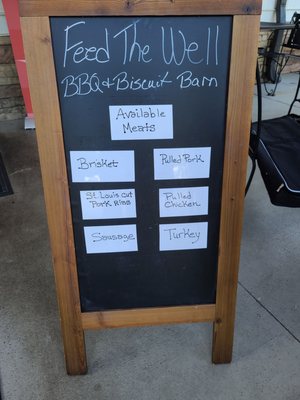 Feed The Well
BBQ & Biscuit Barn
Available
Meats
Brisket
Pulled Pork
St. Louis cut
Pork Ribs
Pulled
Chicken
Sausage
Turkey